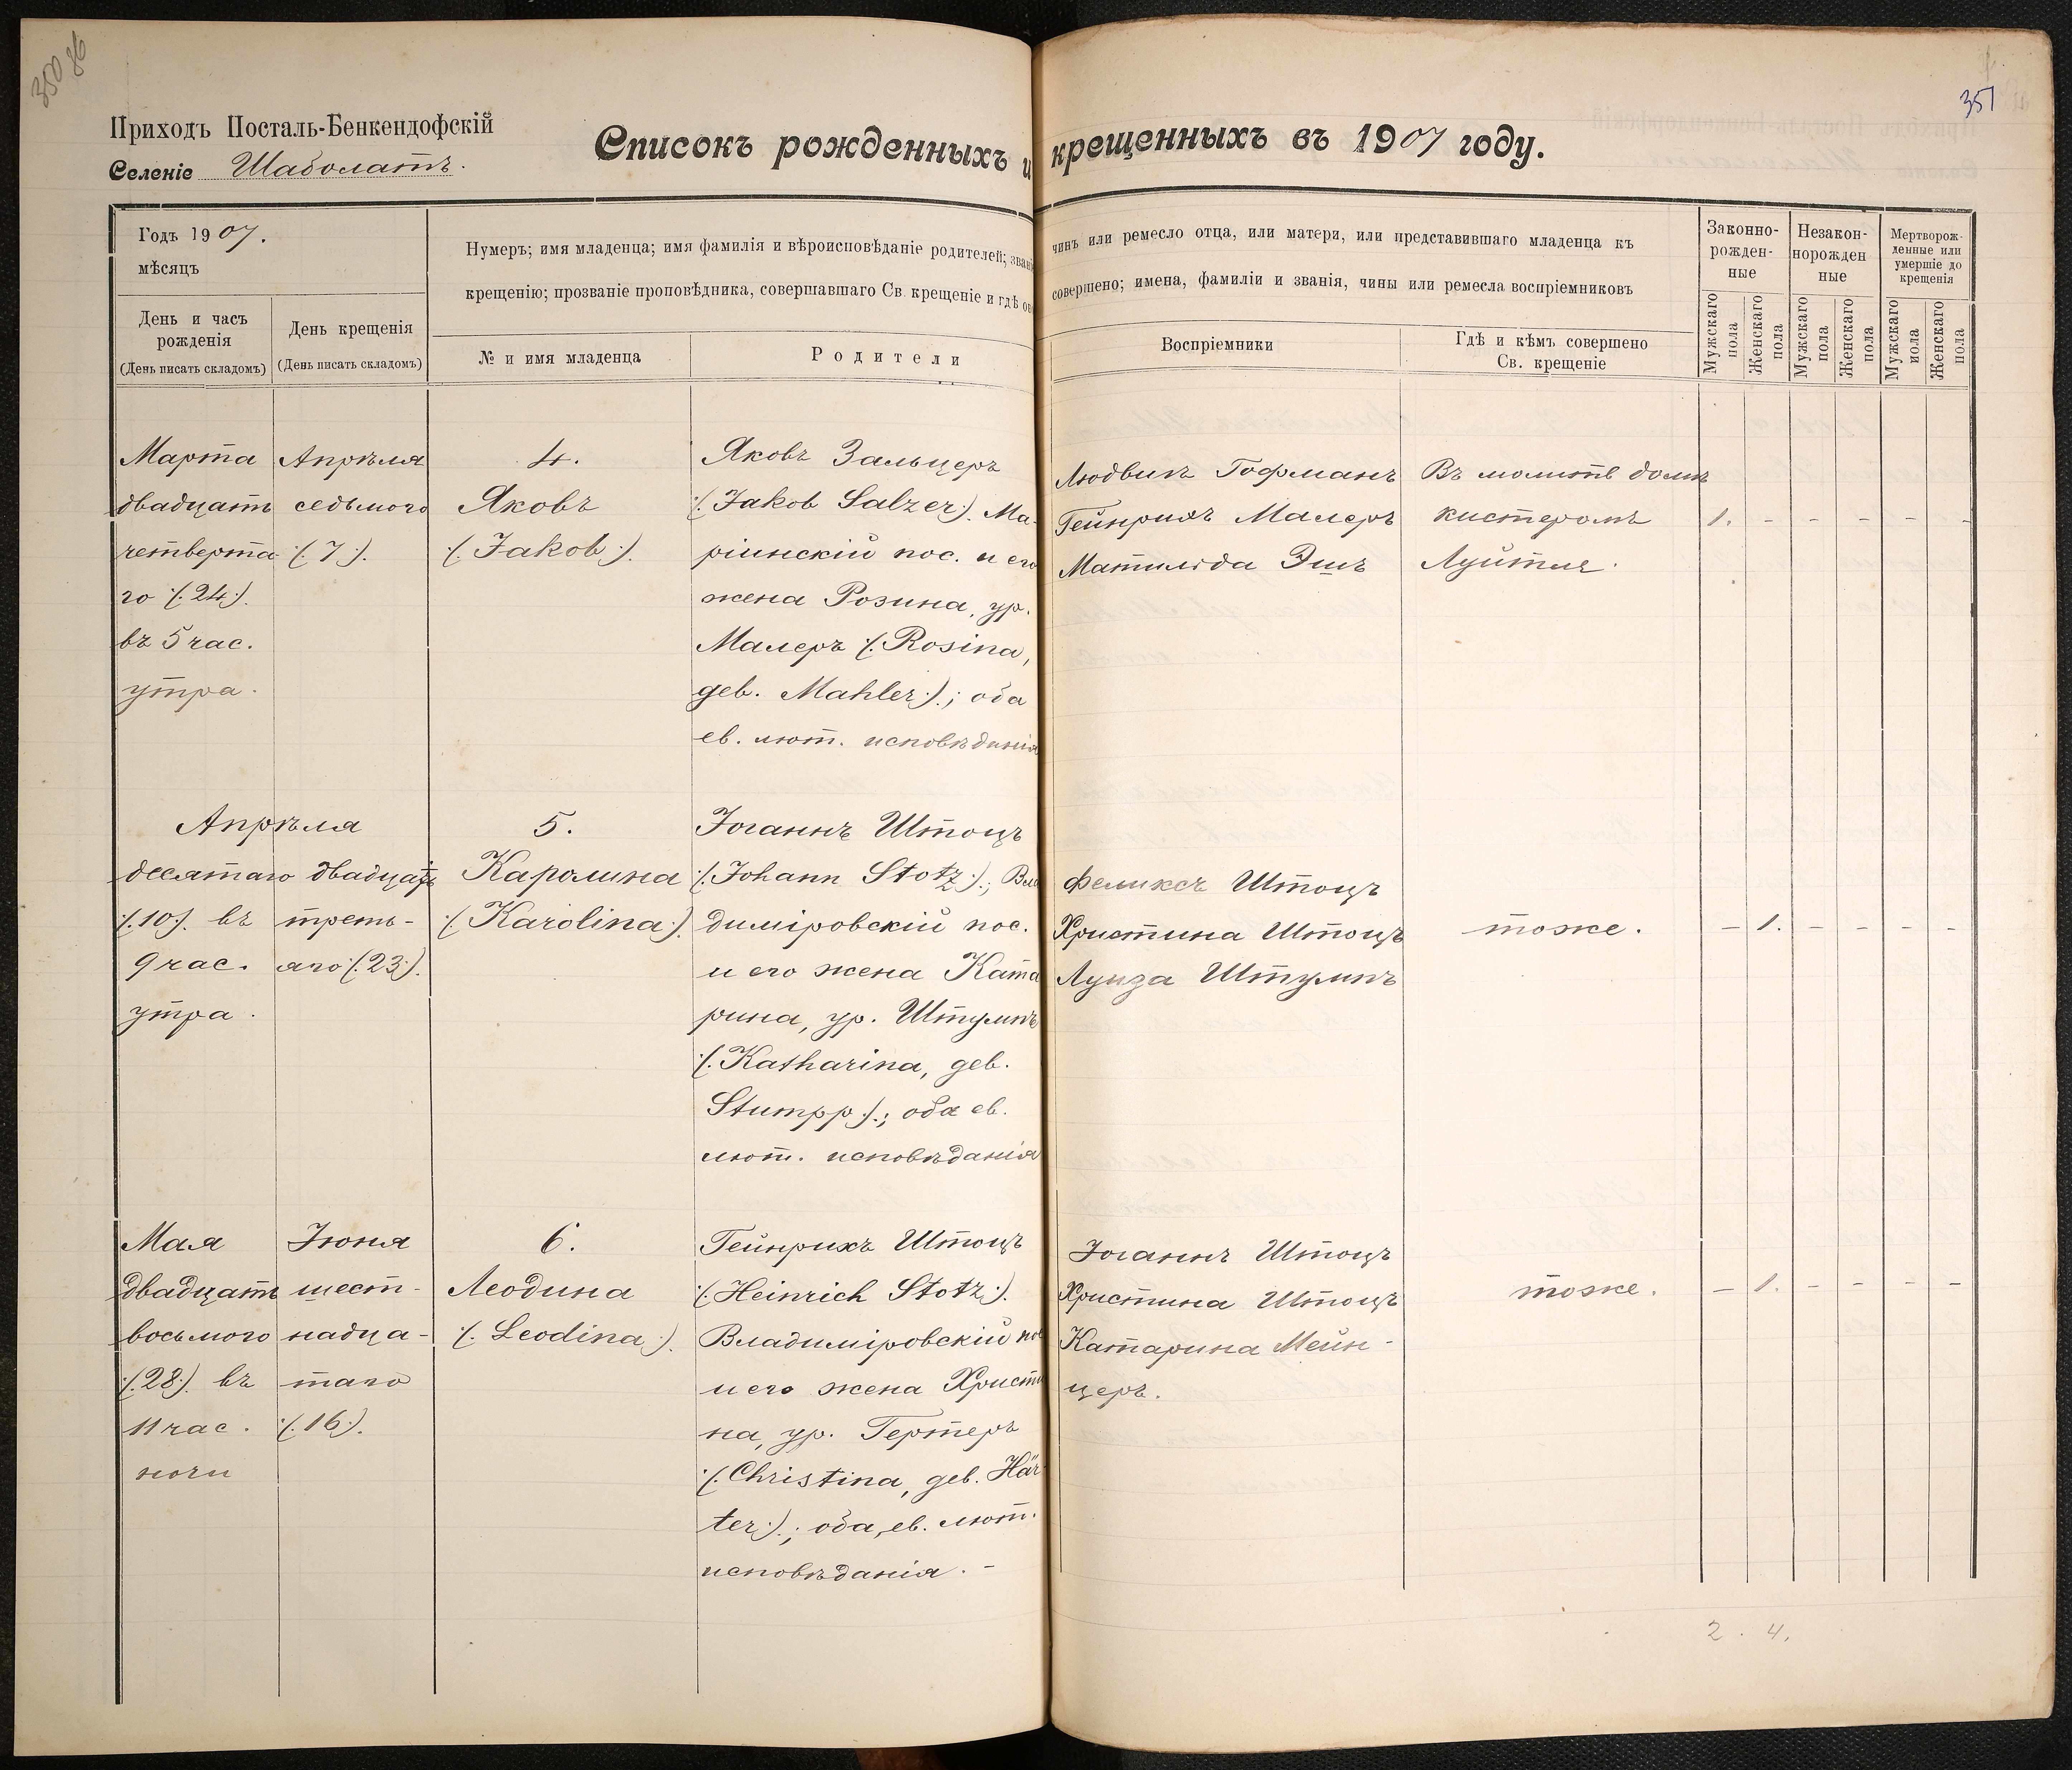 350 об
351
Приходъ Посталь-Бенкендофскій
Селеніе Шаболатъ.
Списокъ рожденныхъ и крещенныхъ въ 1907 году.
Годъ 1907.
мѣсяцъ
День и часъ
рожденія
(День писать складомъ)
День крещенія
(День писать складомъ)
Нумеръ; имя младенца; имя фамилія и вѣроисповѣданіе родителей; званіе
чинъ или ремесло отца, или матери, или представившаго младенца къ
крещенію; прозваніе проповѣдника, совершавшаго Св. крещеніе и гдѣ оно
совершено; имена, фамиліи и званія, чины или ремесла воспріемниковъ
№ и имя младенца
Родители
Воспріемники
Гдѣ и кѣмъ совершено
Св. крещеніе
Законно-
рожден-
ные
Незакон-
норожден
ные
Мертворож-
денные или
умершіе до
крещенія
Мужскаго
пола
Женскаго
пола
Мужскаго
пола
Женскаго
пола
Мужскаго
пола
Женскаго
пола
Марта
двадцать
четверта
го (:24:).
въ 5 час.
утра.
Апрѣля
седьмого
(:7:).
4.
Яковъ
(:Jakob:).
Яковъ Зальцеръ
(:Jakob Salzer:). Ма-
ріинскій пос. и его
жена Розина, ур.
Малеръ (:Rosina,
geb. Mahler:).; оба
ев. лют. исповѣданія
Людвигъ Гофманъ
Гейнрихъ Малеръ
Матильда Эшъ
Въ молитв домѣ
кистеромъ
1. - - - - -
Апрѣля
десятаго
(:10:). въ
9 час.
утра.
двадцать
треть-
яго (:23:).
5.
Каролина
(:Karolina:).
Іоганнъ Штоцъ
(:Johann Stotz:).; Вла
диміровскій пос.
и его жена Ката
рина, ур. Штумпъ
(:Katharina, geb.
Stumpp:).; оба ев.
лют. исповѣданія
Феликсъ Штоцъ
Христина Штоцъ
Луиза Штумпъ
тоже.
- 1. - - - -
Мая
двадцать
восьмого
(:28:). въ
11 час.
ночи
Іюня
шест-
надца-
таго
(:16:).
6.
Леодина
(:Leodina:).
Гейнрихъ Штоцъ
(:Heinrich Stotz:).
Владиміровскій пос
и его жена Христи
на, ур. Гертеръ
(:Christina, geb. Här-
ter:).; оба, ев. лют.
исповѣданія. -
Іоганнъ Штоцъ
Христина Штоцъ
Катарина Мейн-
церъ.
тоже.
- 1. - - - -
2. 4.